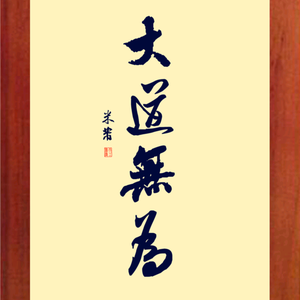 大道無為
米芾